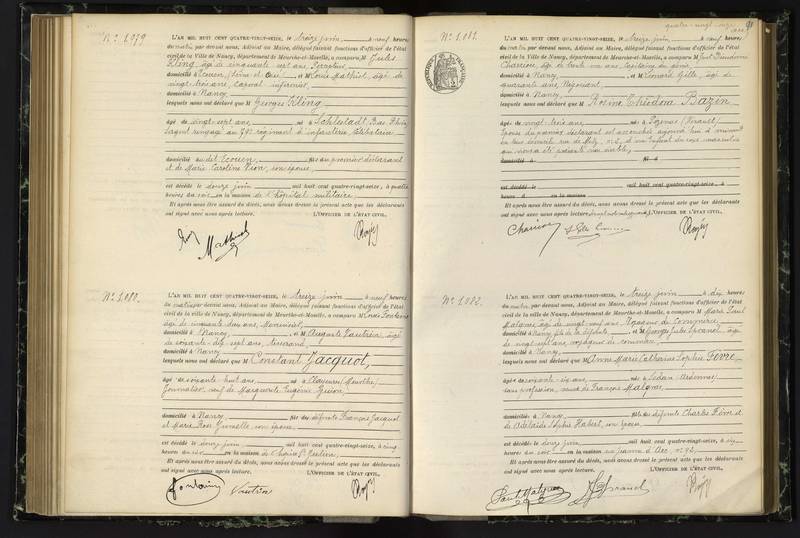 N° 1.079
L'AN MIL HUIT CENT QUATRE-VINGT-SEIZE, le treize juin à neuf heures
du matin par devant nous, Adjoint au Maire, délégué faisant fonctions d'officier de l'état
civil de la Ville de Nancy, département de Meurthe-et-Moselle, a comparu M Jules
Kling, âgé de cinquante sept ans,
domicilié à Ecouen, (Seine et Oise) et M Louis Mathiot, âgé de
vingt trois ans, caporal infirmier,
domicilié à Nancy
lesquels nous ont déclaré que M Georges Kling
âgé de vingt-sept ans, né à Schlestadt, Bas Rhin,
Sergent rengagé au régiment d'infanterie, Célibataire
domicilié au dit Ecouen, fils du premier déclarant
et de Marie Caroline son épouse,
est décédé le douze juin mil huit cent quatre-vingt-seize, à quatre
heures du soir en la maison de l'hôpital militaire,
Et après nous être assuré du décès, nous avons dressé le présent acte que les déclarants
ont signé avec nous après lecture. L'OFFICIER DE L'ÉTAT CIVIL,
N° 1.080.
L'AN MIL HUIT CENT QUATRE-VINGT-SEIZE, le treize juin à neuf heures
du matin par devant nous, Adjoint au Maire, délégué faisant fonctions d'officier de l'état
civil de la Ville de Nancy, département de Meurthe-et-Moselle, a comparu M Louis Fontaine
âgé de cinquante deux ans,
domicilié à Nancy, et M Auguste Vautrin, âgé
de soixante-dix-sept ans, tisserand
domicilié à Nancy
lesquels nous ont déclaré que M Constant Jacquot,
âgé de soixante huit ans, né à (Meurthe)
Journalier, veuf de Marguerite Eugénie
domicilié à Nancy fils des défunts François Jacquot
et Marie Rose son épouse
est décédé le douze juin mil huit cent quatre-vingt-seize, à cinq
heures du soir en la maison de l'hospice St Julien,
Et après nous être assuré du décès, nous avons dressé le présent acte que les déclarants
ont signé avec nous après lecture. L'OFFICIER DE L'ÉTAT CIVIL,
Fontaine Vautrin
quatre-vingt-onze
91
N° 1.081.
RÉPUBLIQUE FRANÇAISE
L'AN MIL HUIT CENT QUATRE-VINGT-SEIZE, le treize juin, à neuf heures
du matin par devant nous, Adjoint au Maire, délégué faisant fonctions d'officier de l'état
civil de la Ville de Nancy, département de Meurthe-et-Moselle, a comparu M
âgé de trente ans,
domicilié à Nancy, et M Léonard Gille, âgé de
quarante ans, Négociant,
domicilié à Nancy,
lesquels nous ont déclaré que M Rosine Théodora Bazin
âgée de vingt-trois ans, née à Pézenas (Hérault)
Epouse du premier déclarant est accouchée aujourd'hui à minuit
en leur domicile rue de Metz, n° d'un Enfant du sexe masculin
qui nous a été présenté sans vie
domicilié à fil d
est décédé le mil huit cent quatre-vingt-seize, à
heures d en la maison
Et après nous être assuré du décès, nous avons dressé le présent acte que les déclarants
ont signé avec nous après lecture L'OFFICIER DE L'ÉTAT CIVIL,
N° 1.082.
L'AN MIL HUIT CENT QUATRE-VINGT-SEIZE, le treize juin à dix heures
du matin par devant nous, Adjoint au Maire, délégué faisant fonctions d'officier de l'état
civil de la Ville de Nancy, département de Meurthe-et-Moselle, a comparu M Marie Paul
Malgras, âgé de vingt neuf ans, Voyageur de Commerce,
domicilié à Nancy, fils de la défunte et M Georges Jules
de vingt-sept ans, voyageur de commerce,
domicilié à Nancy,
lesquels nous ont déclaré que M Anne Marie Catherine Sophie Fèvre
âgée de soixante-six ans, née à Sedan (Ardennes)
sans profession, veuve de François Malgras
domiciliée à Nancy fille des défunts Charles Fèvre et
de Adélaïde Sophie Habert, son épouse,
est décédée le douze juin mil huit cent quatre-vingt-seize, à six
heures du soir en la maison rue Jeanne d'Arc, n°
Et après nous être assuré du décès, nous avons dressé le présent acte que les déclarants
ont signé avec nous après lecture. L'OFFICIER DE L'ÉTAT CIVIL,
Paul Malgras